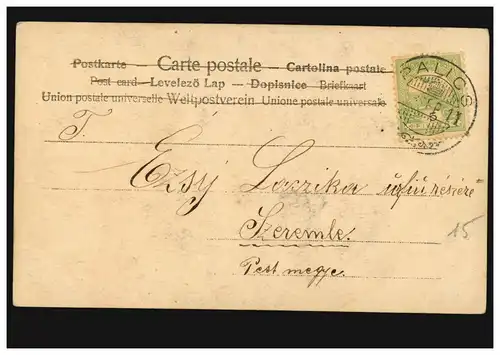 Postkarte – Carte postale – Cartolina postale
Post card – Levelező Lap – Dopisnice – Briefkaart
Union postale universelle Weltpostverein Unione postale universale
PALICS
T.
Lazzika
Szeremle.
Pest megye.
15